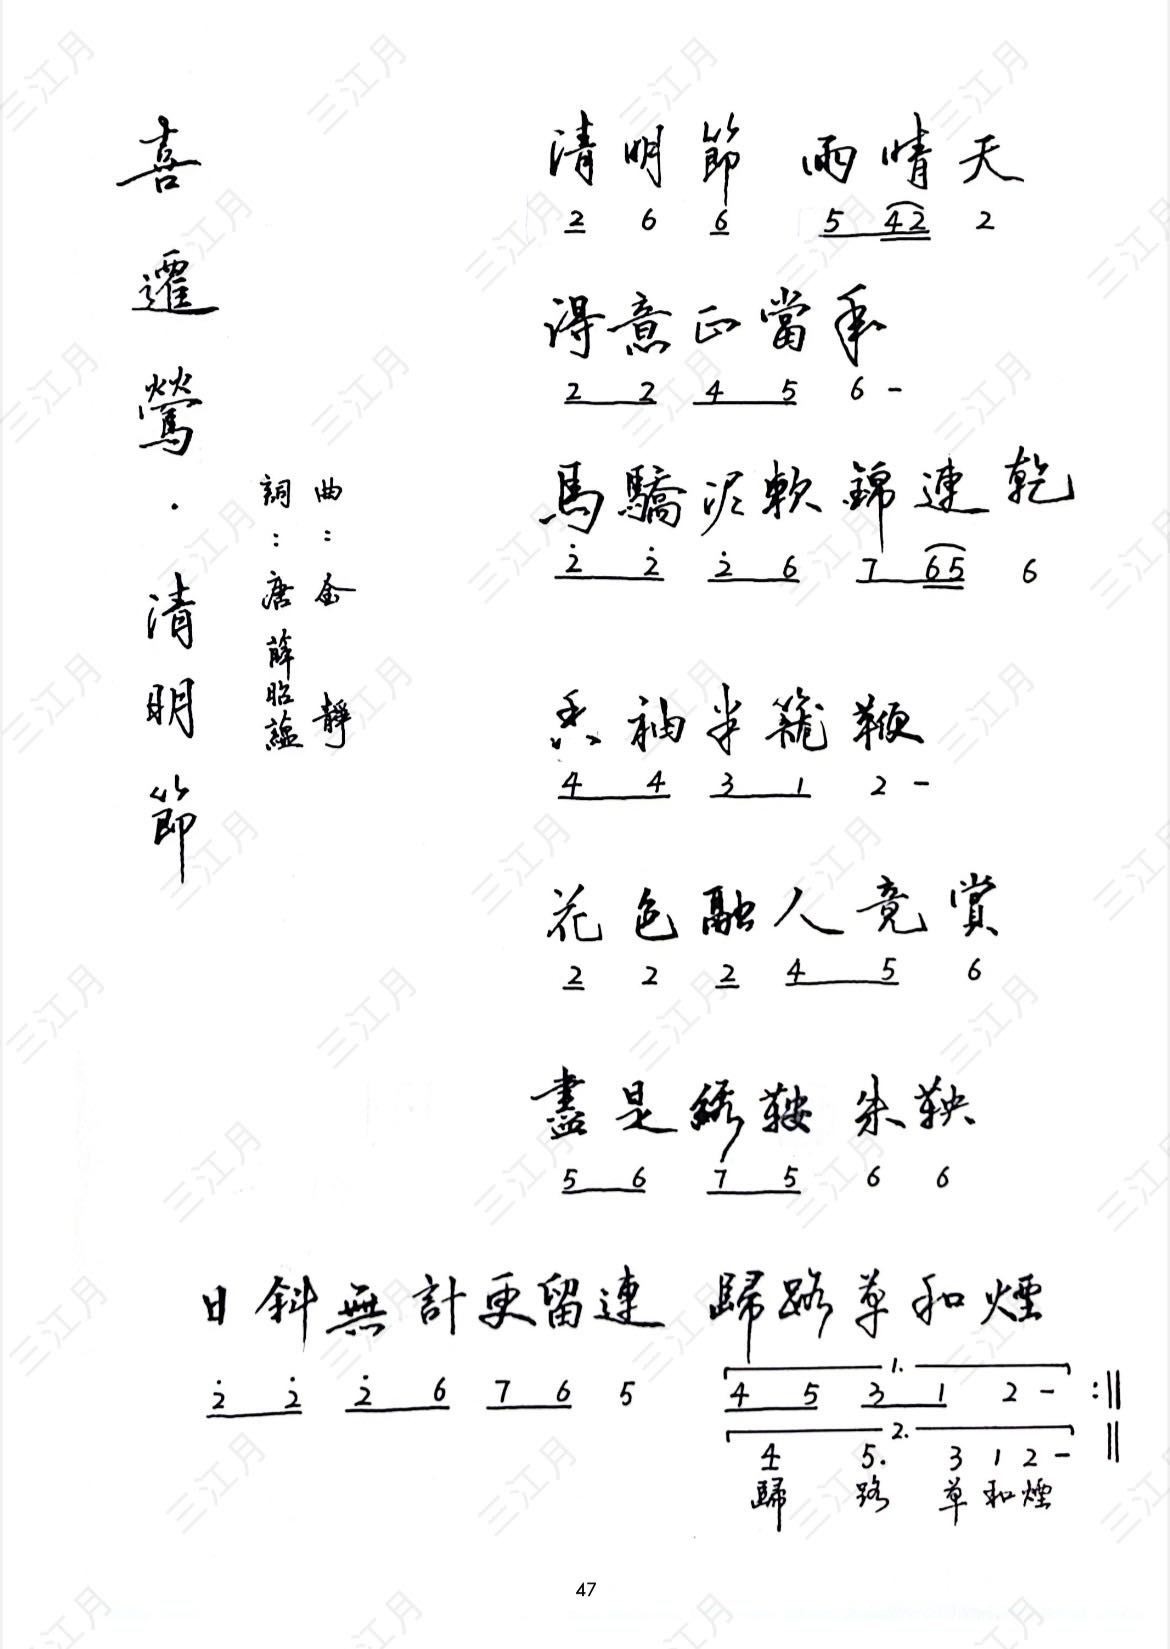 喜遷鶯·清明節
詞：唐 薛昭蘊
曲：金 靜
清明節 雨晴天
2 6 6 5 42 2
得意正當年
2 2 4 5 6 -
馬驕泥軟錦連乾
2 2 2 6 7 65 6
香袖半籠鞭
4 4 3 1 2 -
花色融人竟賞
2 2 2 4 5 6
盡是繡鞍朱鞅
5 6 7 5 6 6
日斜無計更留連 歸路草和煙
1.
2 2 2 6 7 6 5 4 5 3 1 2 - :||
2.
4 5. 3 1 2 - ||
歸 路 草和煙
47
三江月